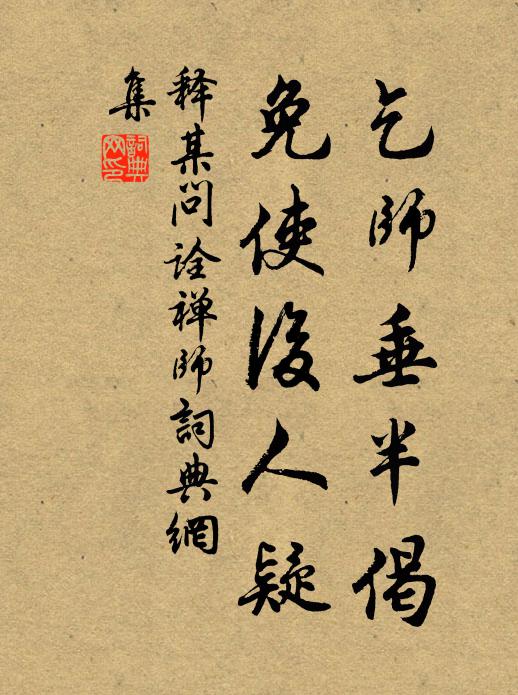 乞師垂半偈
免使後人疑
释某問詮禅師詞典網
集
詞典網印